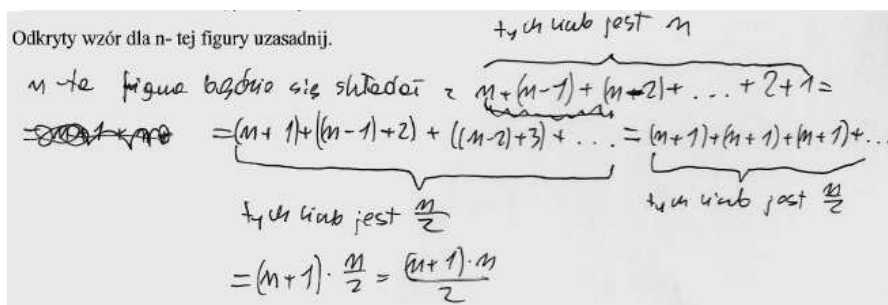 Odkryty wzór dla n- tej figury uzasadnij.
tych liczb jest n
n-ta figura będzie się składać z n+(n-1)+(n-2)+ ... +2+1=
=(n+1)+((n-1)+2)+((n-2)+3)+ ... =(n+1)+(n+1)+(n+1)+...
tych liczb jest n/2
tych liczb jest n/2
=(n+1)·n/2=(n+1)·n/2